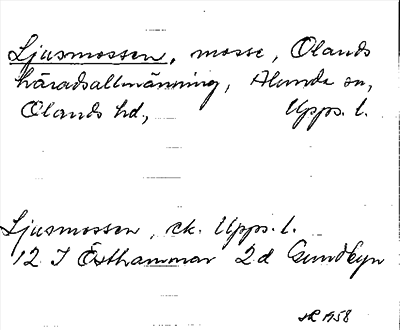 Ljusmossen, mosse, Olands
häradsallmänning, Alunda sn,
Olands hd, Upps. l.
Ljusmossen, ek. Upps. l.
12 I Östhammar 2d Gundbyn
1958